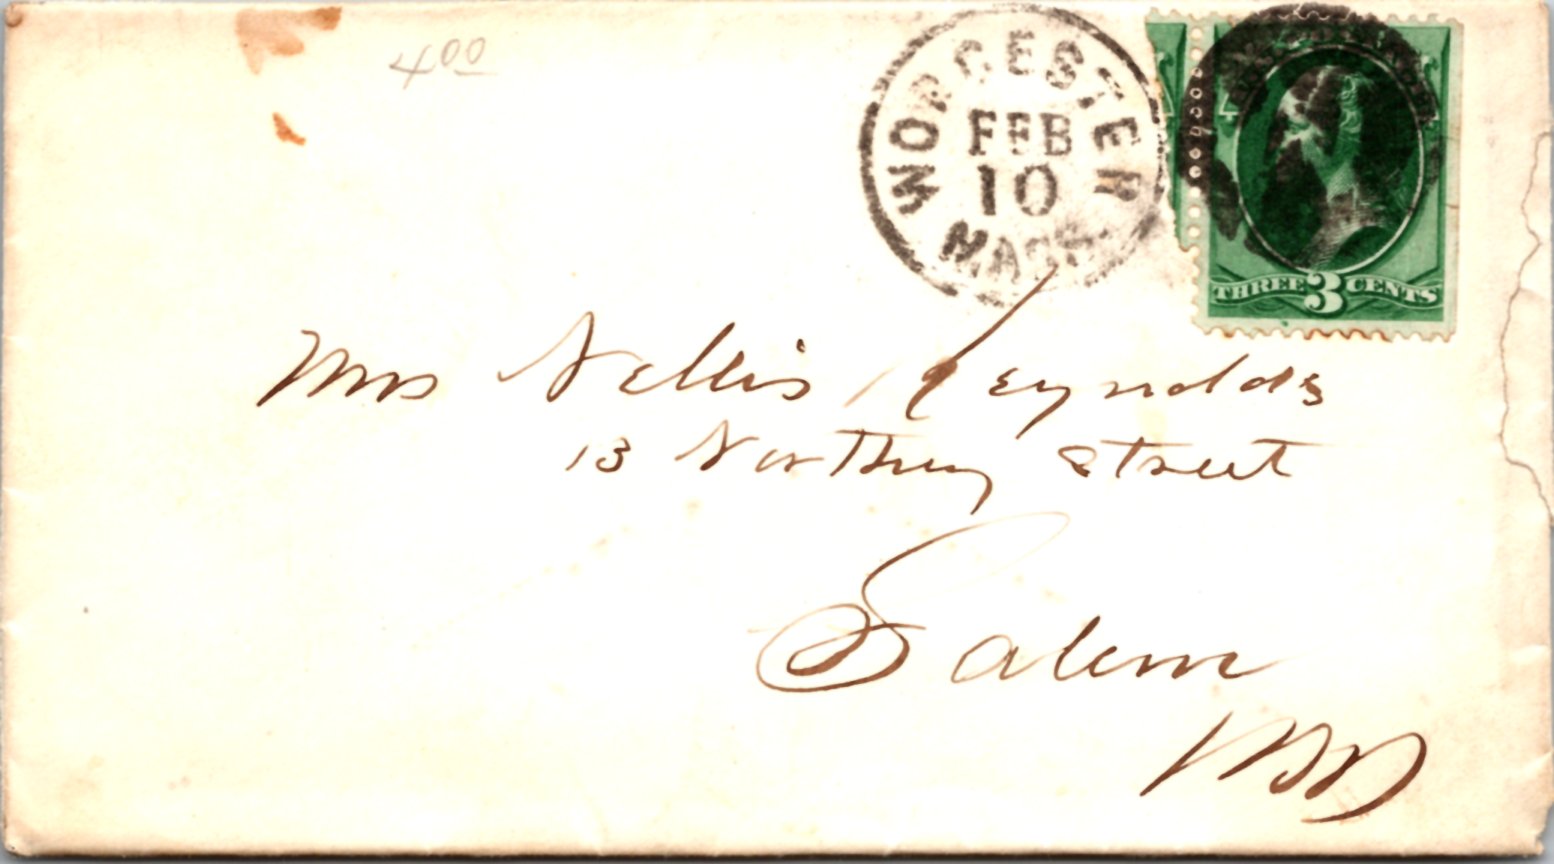 4 00
WORCESTER
FEB
10
MASS
THREE 3 CENTS
Mrs Nellie Reynolds
13 Northey Street
Salem